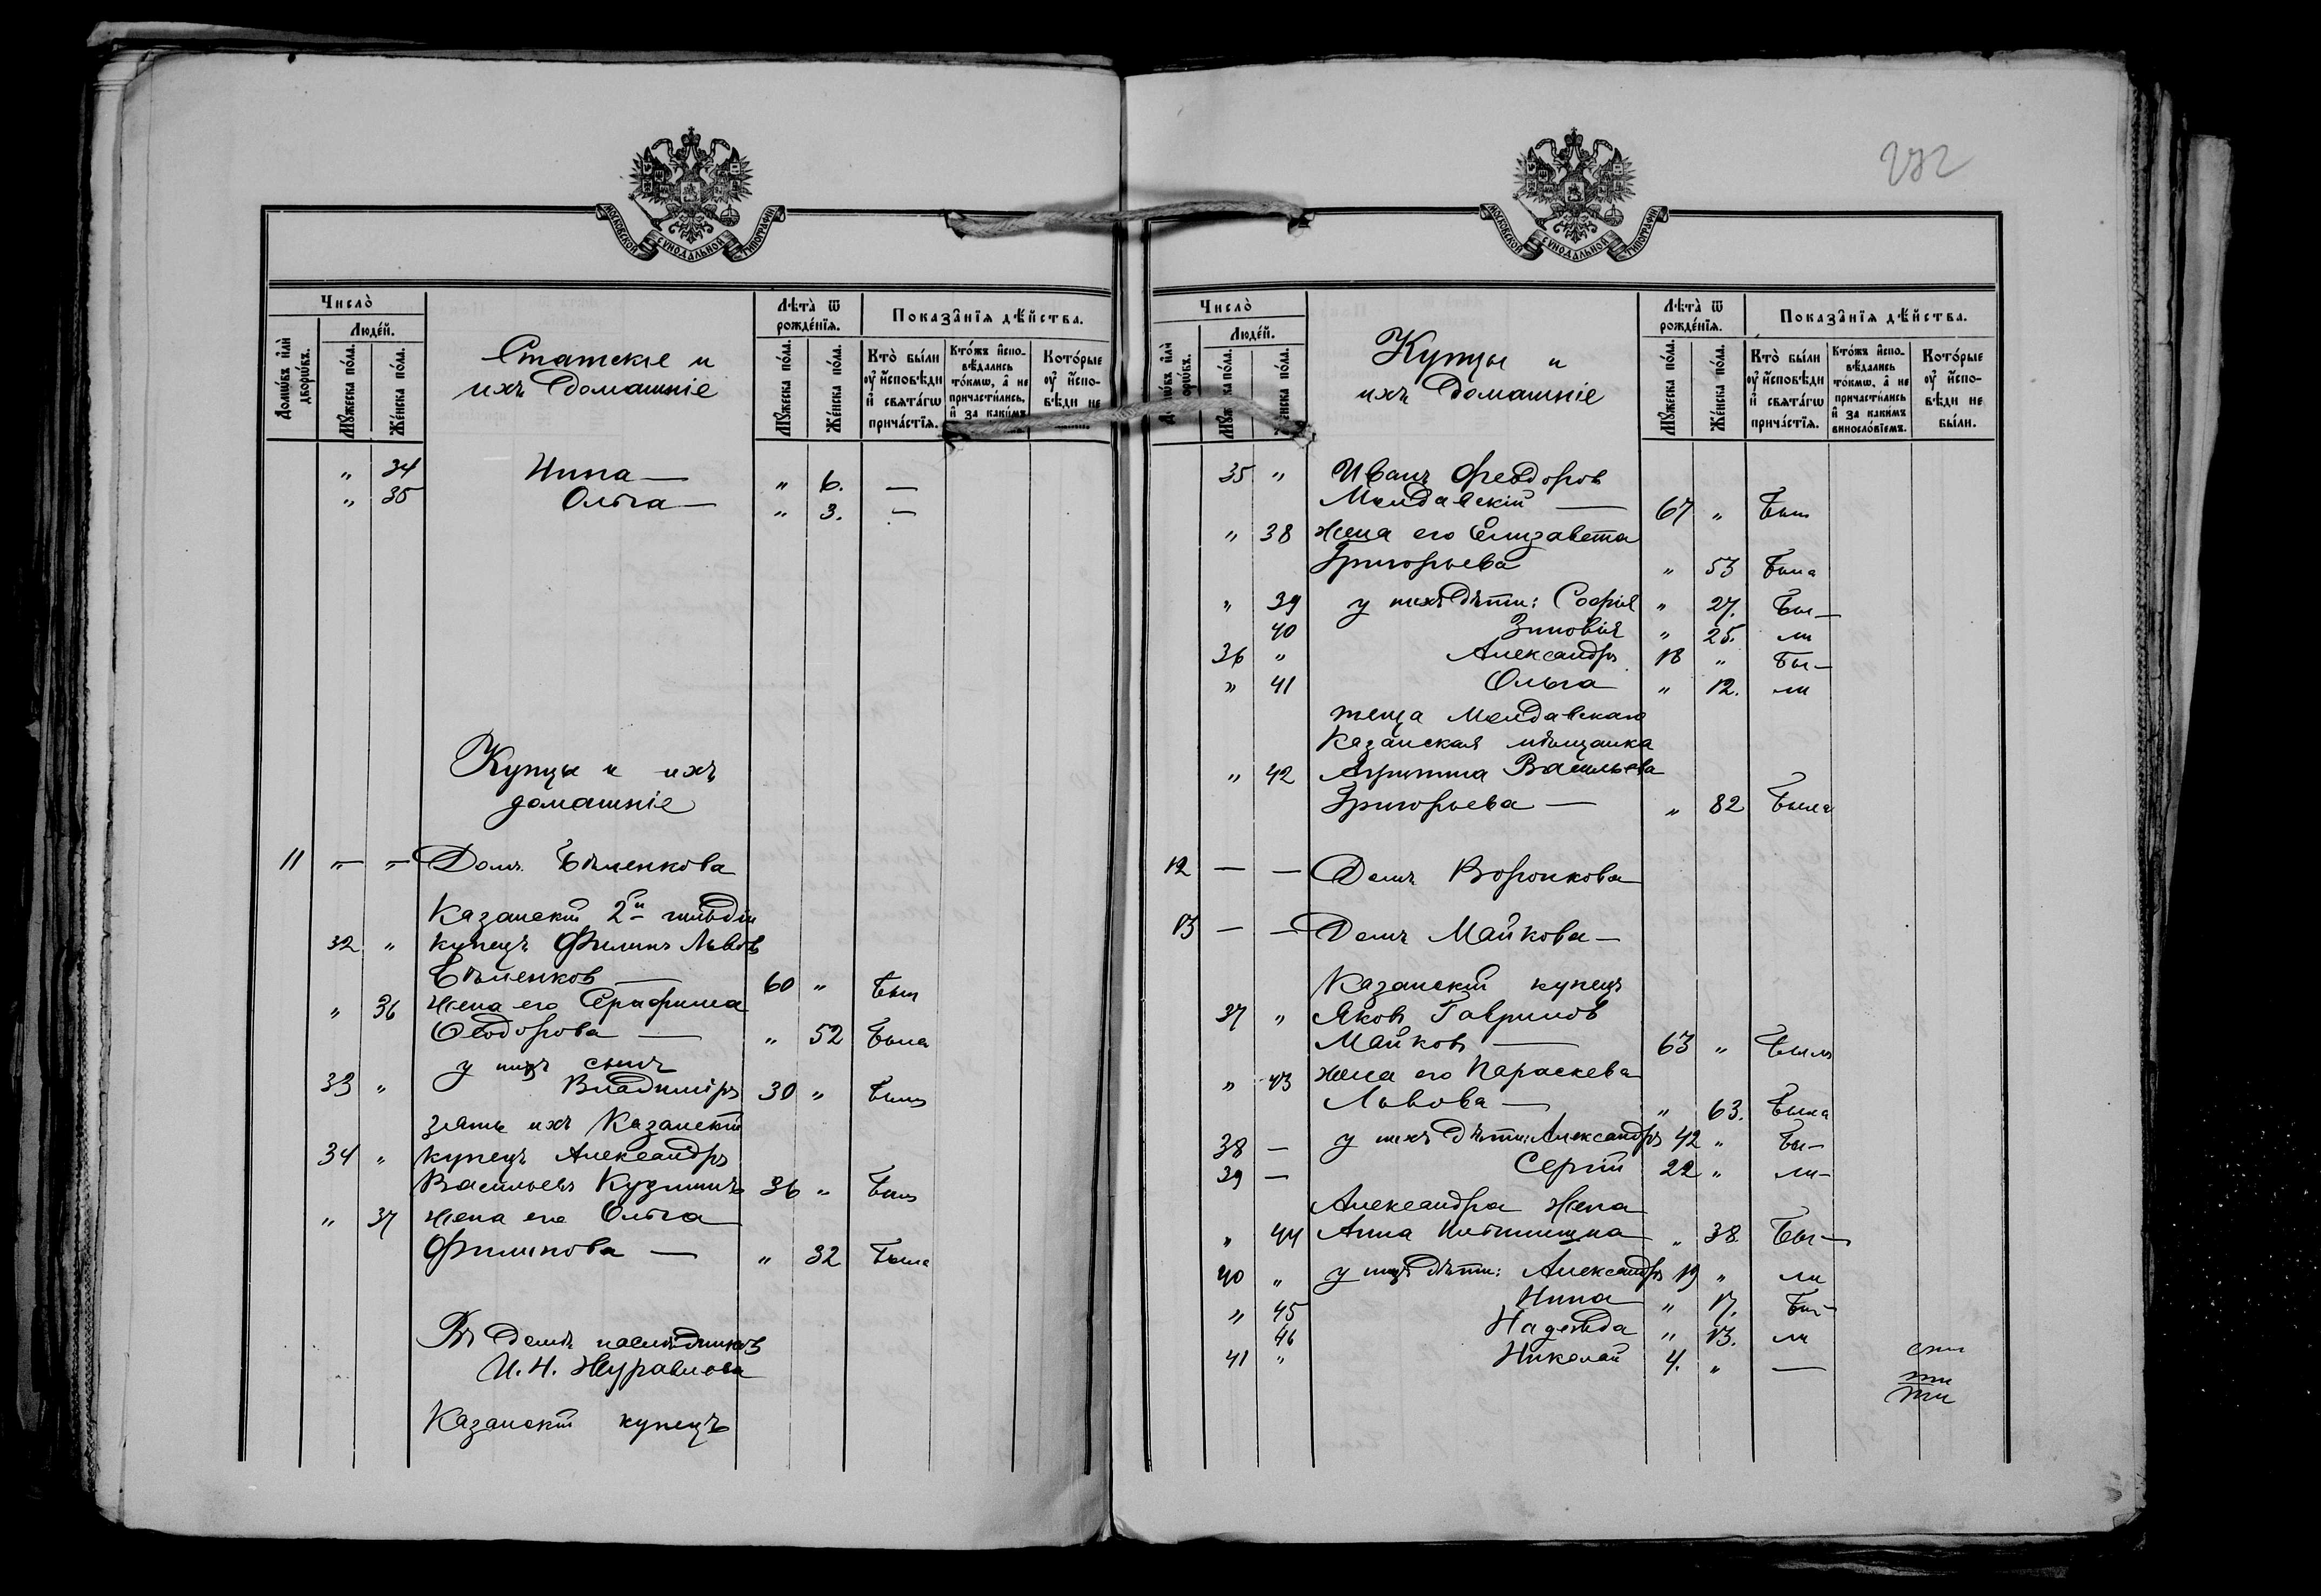 МОСКОВСКОЙ СѴНОДАЛЬНОЙ ТИПОГРАФІИ
Число̀
Людéй.
Домѡ́въ и҆лѝ дворѡ́въ.
Мꙋ́жеска по́ла.
Же́нска по́ла.
Статскіе и
ихъ домашніе
Лѣта̀ ѿ
рожде́нїѧ.
Мꙋ́жеска по́ла.
Же́нска по́ла.
Показа̑нїѧ дѣ́йства.
Кто̀ бы́ли
ᲂу҆ и҆́сповѣди
и҆ свѧта́гѡ
прича́стїѧ.
Кто́жъ и҆спо-
вѣ́дались
то́кмѡ, а҆ не
причасти́лись,
и҆ за каки́мъ
Кото́рые
ᲂу҆ и҆́спо-
вѣди не
" 34 Нина — " 6. —
" 35 Ольга — " 3. —
Купцы и ихъ
домашніе
11 " — " — Домъ Бѣленкова
Казанскій 2й гильдіи
32 " купецъ Филипъ Львовъ
Бѣленков — 60 " Былъ
" 36 Жена его Серафима
Ѳеодорова — " 52 Была
у нихъ сынъ
33 " Владиміръ 30 " Былъ
зять ихъ Казанскій
34 " купецъ Александръ
Васильевъ Кузминъ 36 " Былъ
" 37 Жена его Ольга
Филипова — " 32 Была
Въ домѣ наслѣдниковъ
И. Н. Журавлова
Казанскій купецъ
272
МОСКОВСКОЙ СѴНОДАЛЬНОЙ ТИПОГРАФІИ
Число̀
Людéй.
Домѡ́въ и҆лѝ дворѡ́въ.
Мꙋ́жеска по́ла.
Же́нска по́ла.
Купцы и
ихъ домашніе
Лѣта̀ ѿ
рожде́нїѧ.
Мꙋ́жеска по́ла.
Же́нска по́ла.
Показа̑нїѧ дѣ́йства.
Кто̀ бы́ли
ᲂу҆ и҆́сповѣди
и҆ свѧта́гѡ
прича́стїѧ.
Кто́жъ и҆спо-
вѣ́дались
то́кмѡ, а҆ не
причасти́лись
и҆ за каки́мъ
виносло́вїемъ.
Кото́рые
ᲂу҆ и҆́спо-
вѣди не
бы́ли.
35 " Иванъ Феодоров
Молдавскій — 67 " Был
" 38 Жена его Елизавета
Григорьева " 53 Была
" 39 у нихъ дѣти: Софія " 27. Бы—
40 Зиновія " 25. ли
36 " Александръ 18 " Бы—
" 41 Ольга " 12. ли
теща Молдавскаго
Казанская мѣщанка
" 42 Агрипина Васильева
Григорьева — " 82 Была
12 — — Домъ Воронкова
13 — — Домъ Майкова —
Казанскій купецъ
37 " Яковъ Гаврилов
Майковъ — 63 " Былъ
" 43 Жена его Параскева
Львова — " 63. Была
38 — у нихъ дѣти: Александръ 42 " Бы—
39 — Сергій 22 " ли—
Александра Жена
" 44 Анна " 38 Бы—
40 " у нихъ дѣти: Александръ 19 " ли
" 45 Нина " 17. Бы—
46 Надежда " 13. ли
41 " Николай 4. " —